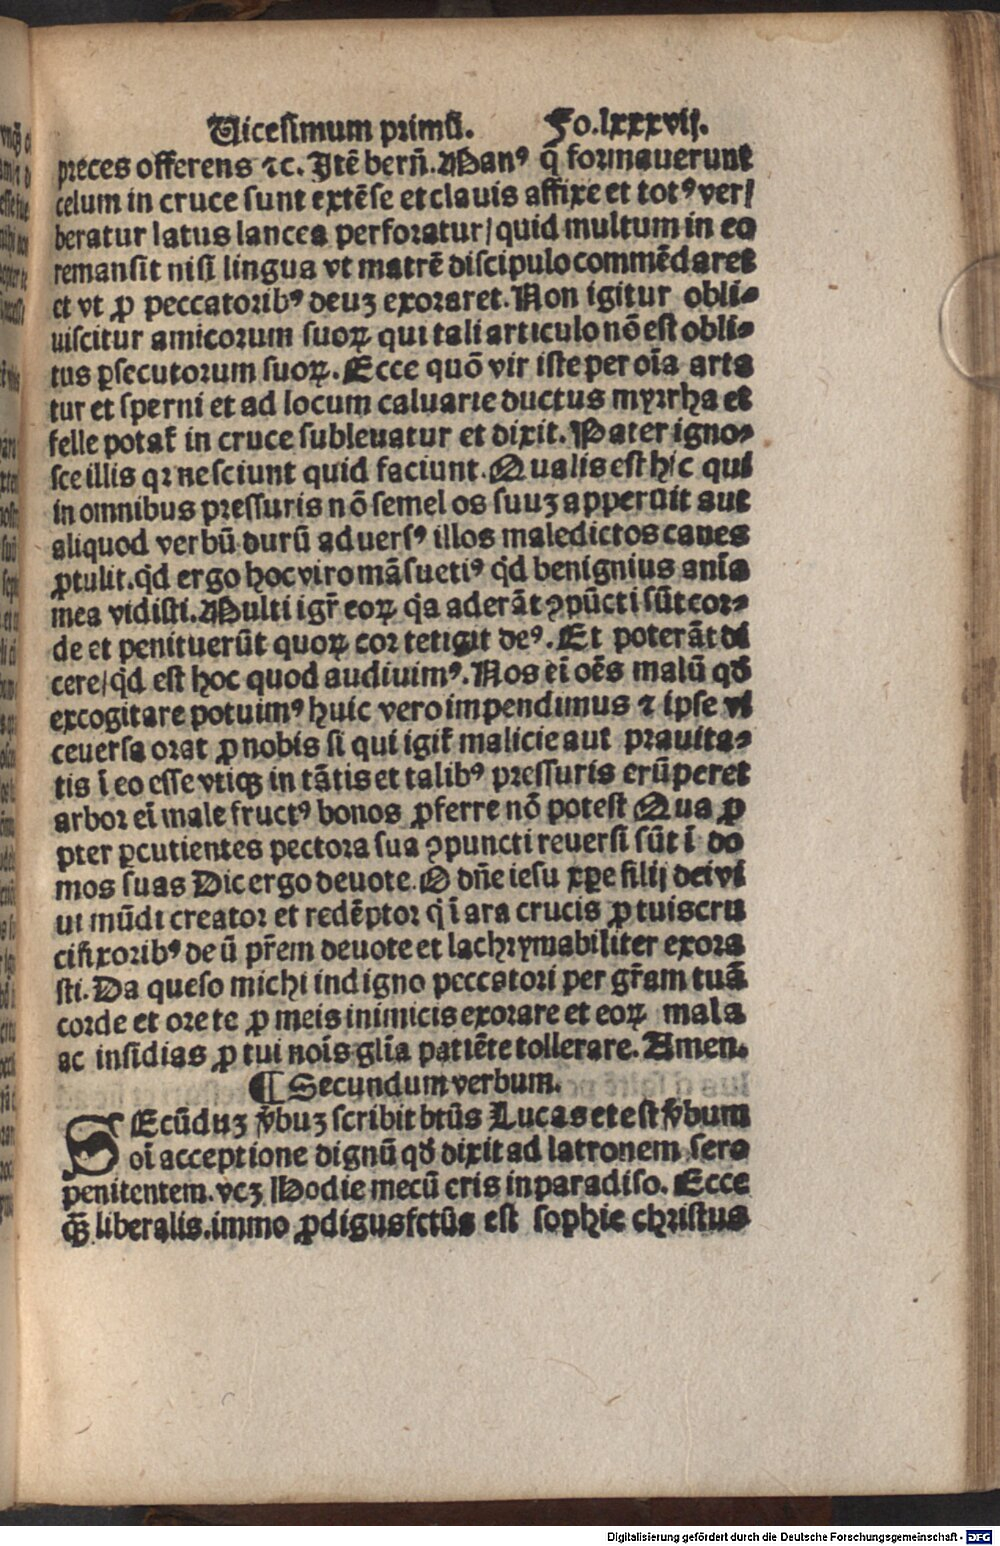 Uicesimum primũ. Fo.lxxxvij.
preces offerens ⁊c. Itẽ berñ. Manꝰ q̃ formauerunt
celum in cruce sunt extẽse et clauis affixe et totꝰ ver/
beratur latus lancea perforatur/quid multum in eo
remansit nisi lingua vt matrẽ discipulo commẽdaret
et vt ꝓ peccatoribꝰ deuȝ exoraret. Non igitur obli⸗
uiscitur amicorum suoꝝ qui tali articulo nõ est obli⸗
tus ꝑsecutorum suoꝝ. Ecce quõ vir iste per oĩa arta
tur et sperni et ad locum caluarie ductus myrrha et
felle potat̃ in cruce subleuatur et dixit. Pater igno⸗
sce illis qꝛ nesciunt quid faciunt. Qualis est hic qui
in omnibus pressuris nõ semel os suuȝ apperuit aut
aliquod verbũ durũ aduersꝰ illos maledictos canes
ꝓtulit. qd̃ ergo hoc viro mãsuetiꝰ qd̃ benignius anĩa
mea vidisti. Multi igr̃ eoꝝ q̃a aderãt ꝯpũcti sũt cor⸗
de et penituerũt quoꝝ cor tetigit deꝰ. Et poterãt di
cere/qd̃ est hoc quod audiuimꝰ. Nos eĩ oẽs malũ qđ
excogitare potuimꝰ huic vero impendimus ⁊ ipse vi
ceuersa orat ꝓ nobis si qui igit̃ malicie aut prauita⸗
tis ĩ eo esse vtiqꝫ in tãtis et talibꝰ pressuris erũperet
arbor eĩ male fructꝰ bonos ꝓferre nõ potest Qua ꝓ
pter ꝑcutientes pectora sua ꝯpuncti reuersi sũt ĩ do
mos suas Dic ergo deuote. O dñe iesu xp̃e filij dei vi
ui mũdi creator et redẽptor q̃ ĩ ara crucis ꝓ tuis cru
cifixoribꝰ deũ pr̃em deuote et lachrymabiliter exora
sti. Da queso michi indigno peccatori per gr̃am tuã
corde et ore te ꝓ meis inimicis exorare et eoꝝ mala
ac insidias ꝓ tui noĩs glĩa patiẽte tollerare. Amen.
¶ Secundum verbum.
SEcũduȝ v̾buȝ scribit btũs Lucas et est v̾bum
oĩ acceptione dignũ qđ dixit ad latronem sero
penitentem. vcȝ Hodie mecũ eris in paradiso. Ecce
qꝫ̃ liberalis. immo ꝓdigus fctũs est sophie christus
Digitalisierung gefördert durch die Deutsche Forschungsgemeinschaft - DFG